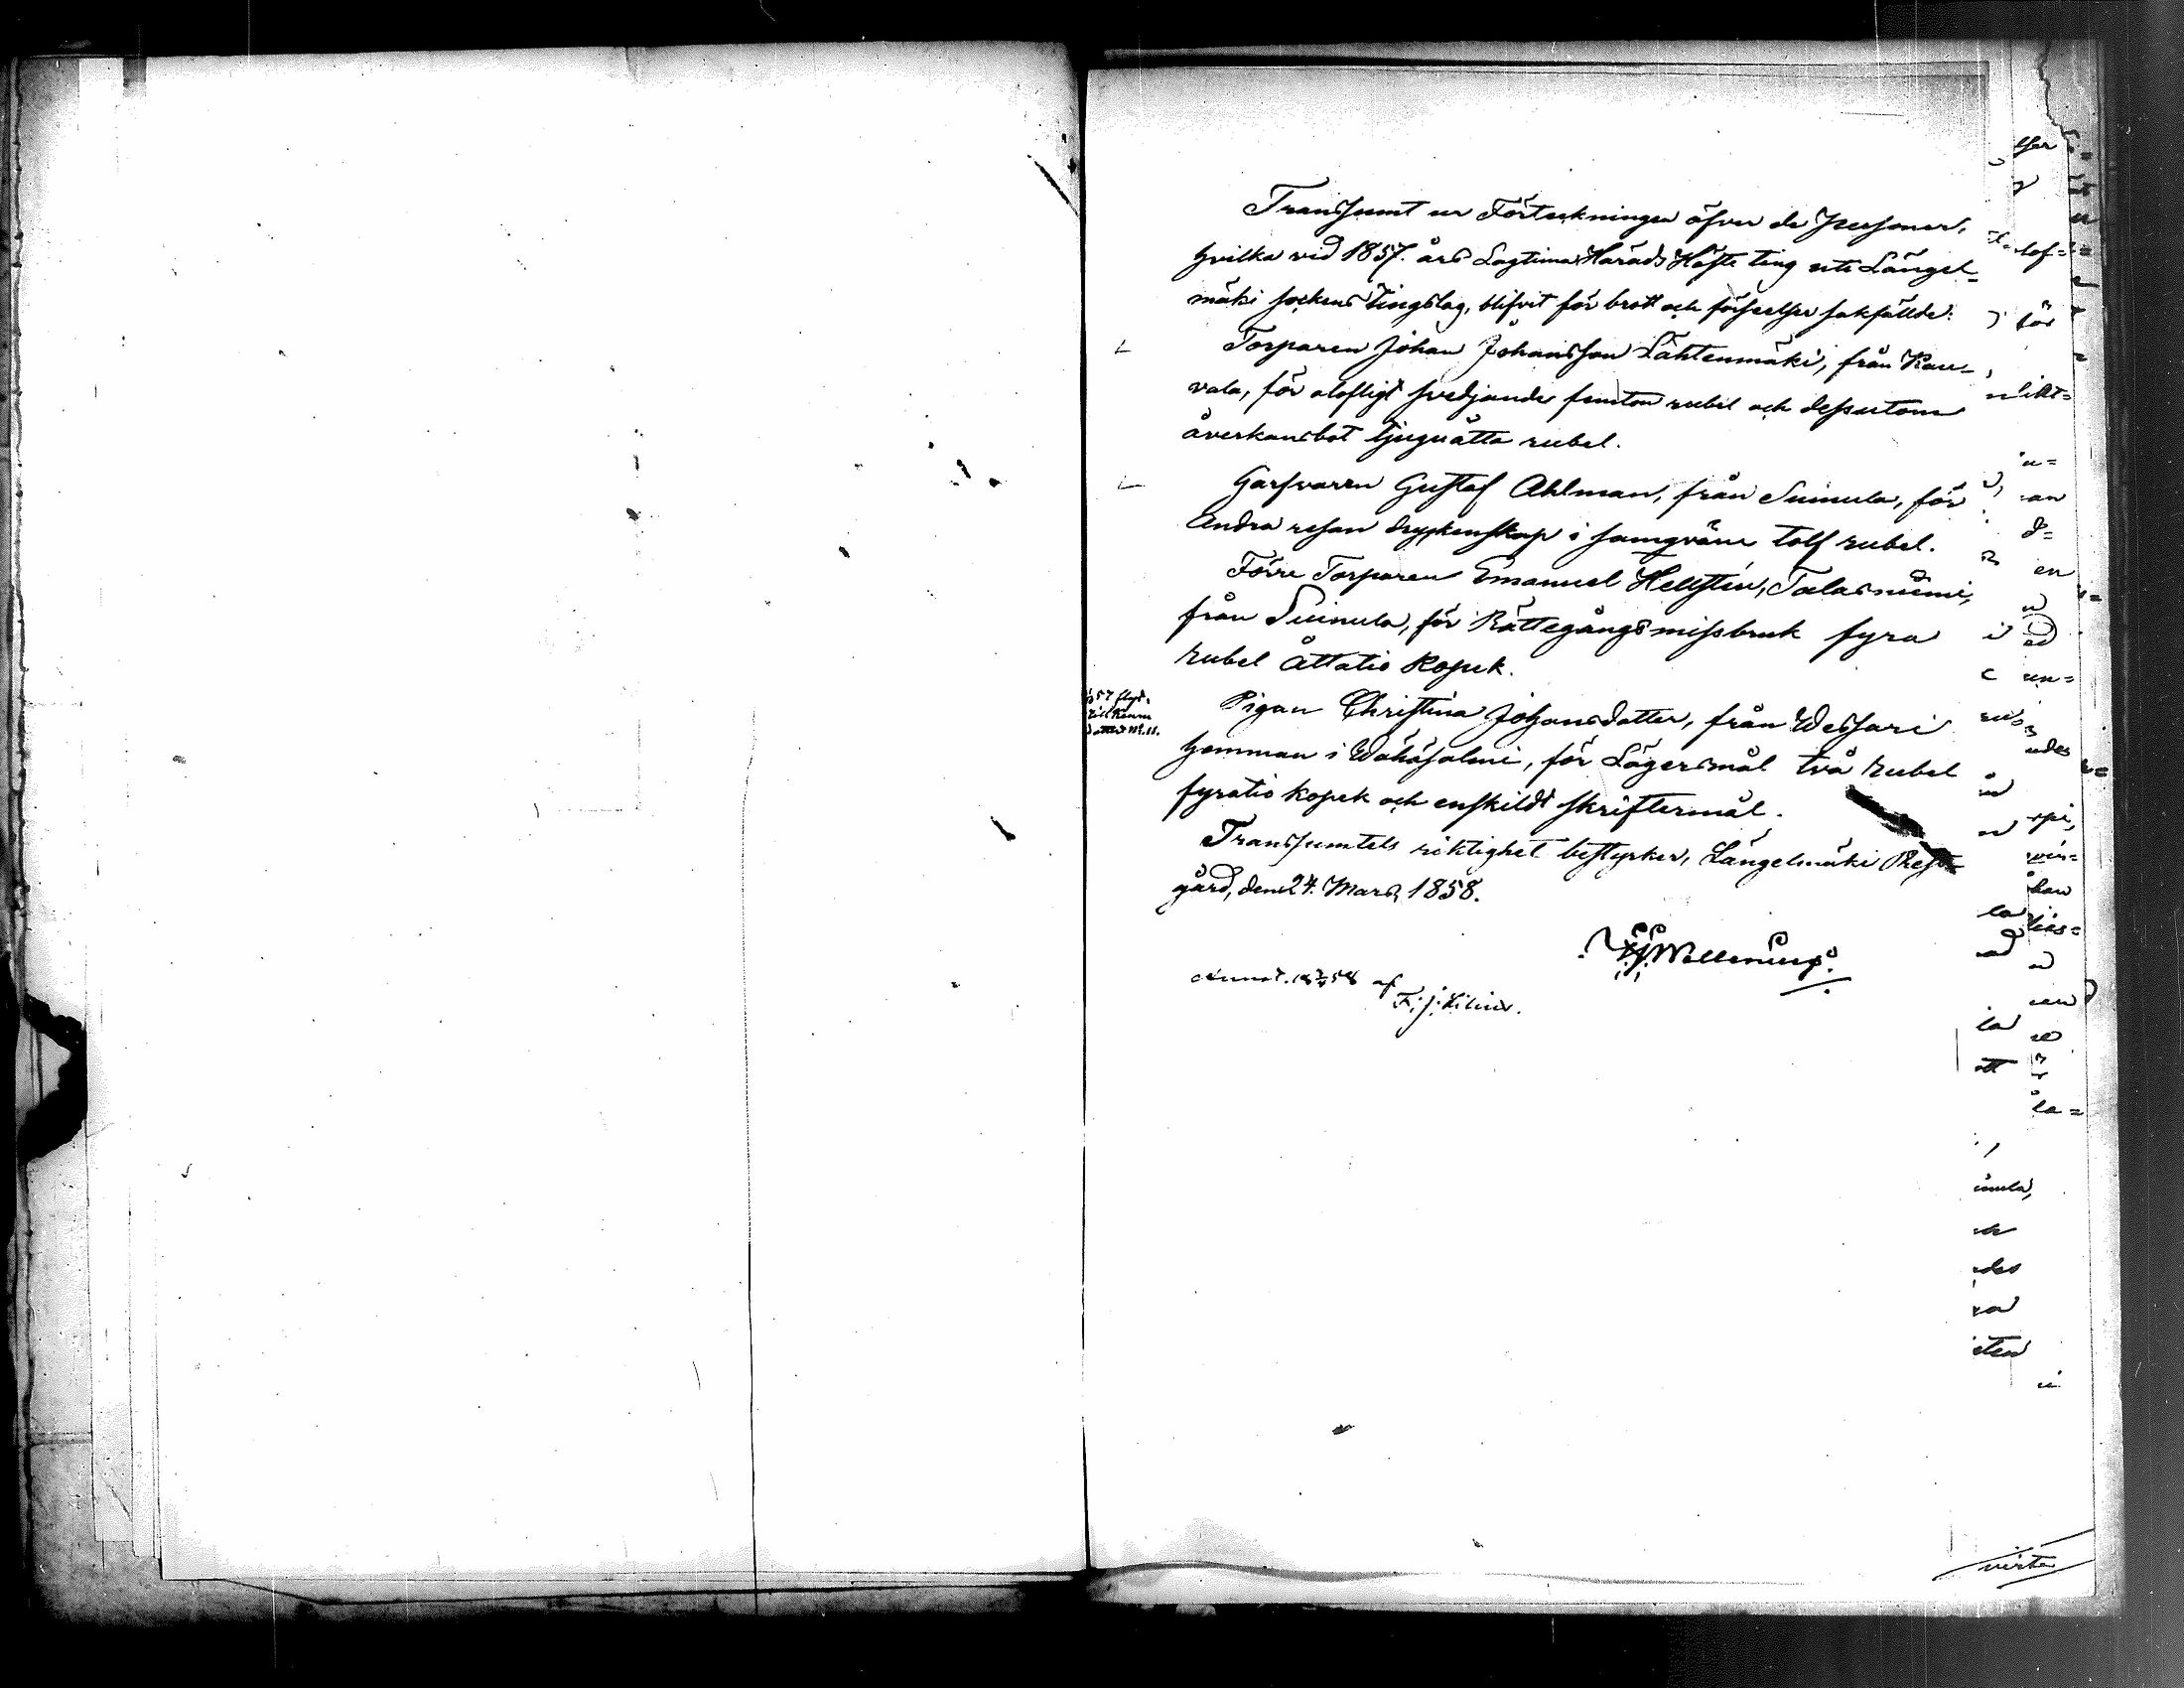 Transsumt ur Förteckningen öfver de personer,
hvilka vid 1857. års Lagtima Härads Höste ting uti Längel-
mäki sockens Tingslag, blifvit för brott och förseelser sakfällde:
Torparen Johan Johansson Lähtenmäki, från Rau-
vala, för olofligt svedjande femton rubel och dessutom
åverkansbot tjuguåtta rubel.
Garfvaren Gustaf Ahlman, från Suinula, för
Andra resan dryckenskap i samqväm tolf rubel.
Förre Torparen Emanuel Hellstén, Talasniemi,
från Suinula, för Rättegångsmissbruk fyra
rubel åttatio kopek.
57 flyt.
Pigan Christina Johansdotter, från Wessari
hemman i Wähäsalmi, för Lägersmål två rubel
fyratio kopek och enskildt skriftermål.
Transsumtets riktighet bestyrker, Längelmäki Prest-
gård, den 24. Mars 1858.
Wallenius
af
F. J.
ther
lof=
för
likt=
an
d=
en
un=
udes
han
la
att
la=
des
iten
virte